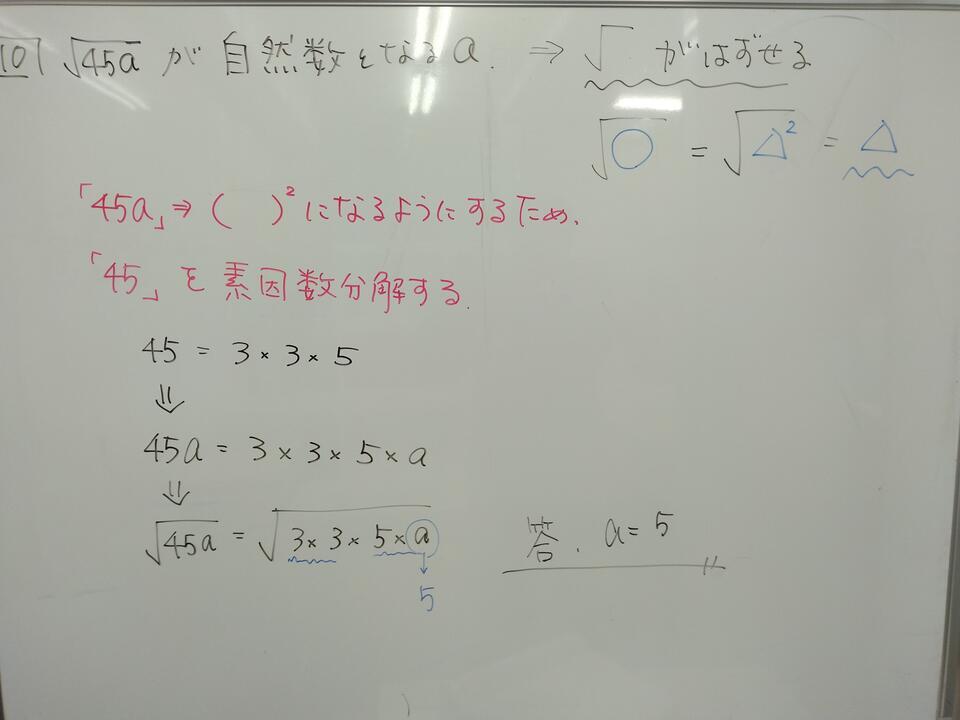 10 √45a が 自然数となるa. ⇒ √ がはずせる
√○ = √△² = △
「45a」⇒ ( )² になるようにするため.
「45」を素因数分解する.
45 = 3 × 3 × 5
⇓
45a = 3 × 3 × 5 × a
⇓
√45a = √3 × 3 × 5 × a
5
答. a = 5